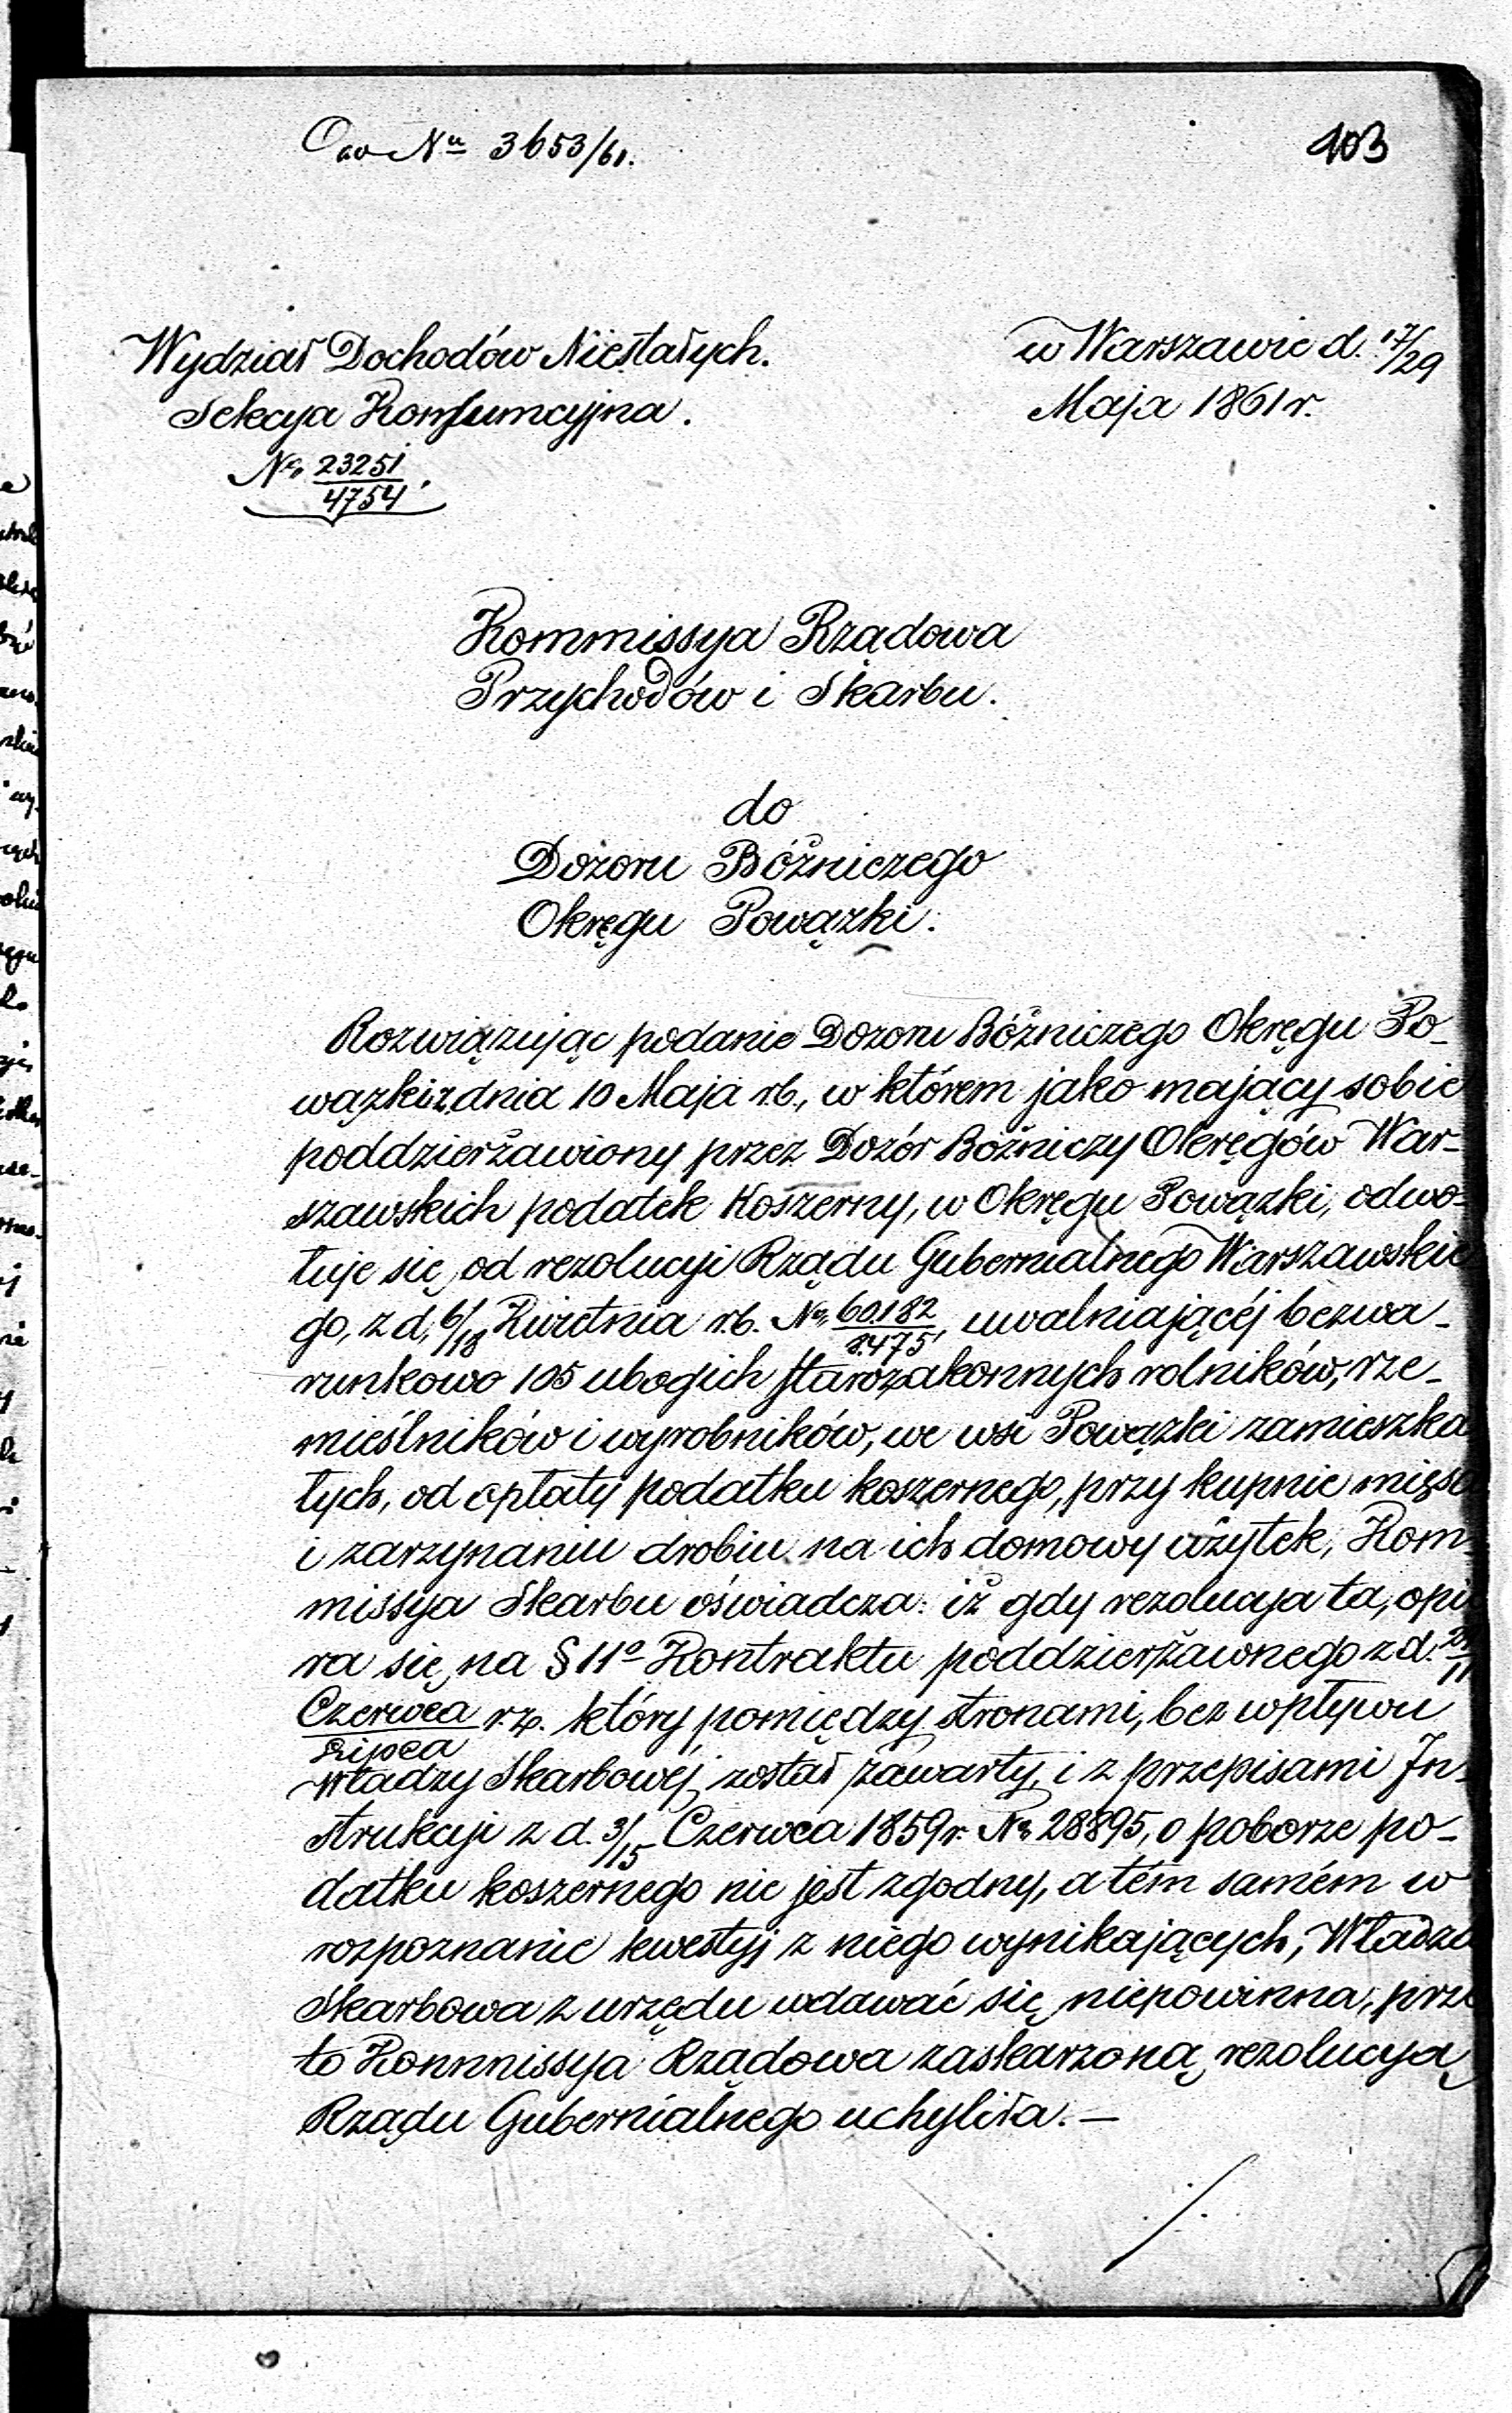 Nu 3653/61.
103
Wydział Dochodów Niestałych.
w Warszawie d. 17/29
Sekcya Konsumcyjna.
Maja 1861 r.
No 23251/4754.
Kommissya Rządowa
Przychodów i Skarbu.
do
Dozoru Bóżniczego
Okręgu Powązki.
Rozwiązując podanie Dozoru Bóżniczego Okręgu Po-
wązki z dnia 10 Maja r.b., w którem jako mający sobie
poddzierżawiony przez Dozór Bóżniczy Okręgów War-
szawskich podatek Koszerny, w Okręgu Powązki, odwo-
łuje się, od rezolucyi Rządu Gubernialnego Warszawskie
go, z d. 6/18 Kwietnia r.b. No 60182/8475, uwalniającéj bezwa-
runkowo 105 ubogich starozakonnych rolników, rze-
mieślników i wyrobników, we wsi Powązki zamieszka
łych, od opłaty podatku koszernego, przy kupnie mięsa
i zarzynaniu drobiu na ich domowy użytek, Kom
missya Skarbu oświadcza: iż gdy rezolucya ta, opie
ra się, na § 11o Kontraktu poddzierżawnego z d.
Czerwca/Lipca r.z. który pomiędzy stronami, bez wpływu
Władzy Skarbowéj został zawarty, i z przepisami In-
strukcyi z d. 3/15 Czerwca 1859 r. No 28895, o poborze po-
datku koszernego nie jest zgodny, a tém samém w
rozpoznanie kwestyj z niego wynikających, Władza
Skarbowa z urzędu wdawać się niepowinna, prze
to Kommissya Rządowa zaskarzoną rezolucyą
Rządu Gubernialnego uchyliła. —